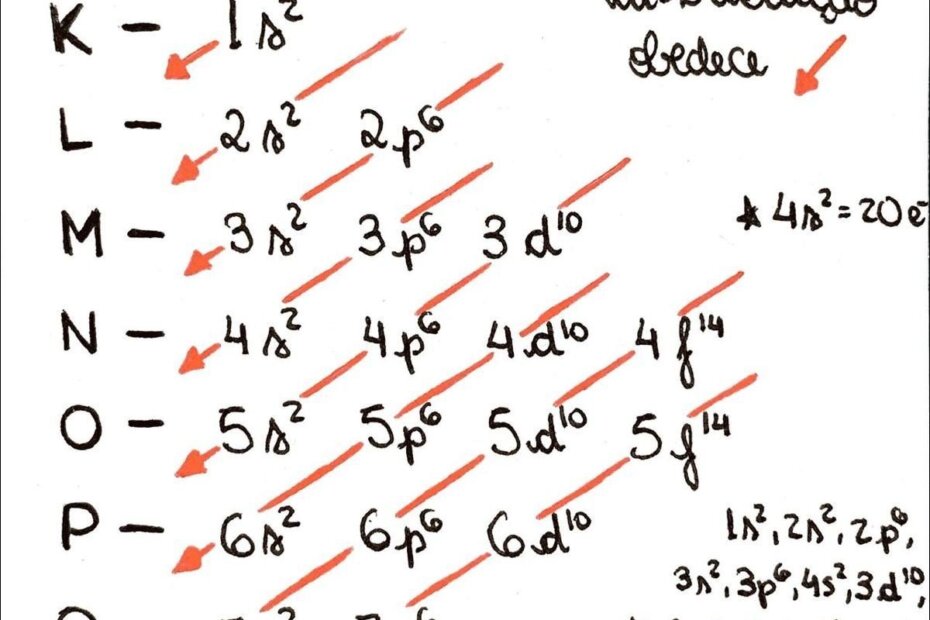 K – 1s²
obedece
L – 2s² 2p⁶
M – 3s² 3p⁶ 3d¹⁰
★ 4s² = 20e⁻
N – 4s² 4p⁶ 4d¹⁰ 4f¹⁴
O – 5s² 5p⁶ 5d¹⁰ 5f¹⁴
P – 6s² 6p⁶ 6d¹⁰
1s², 2s², 2p⁶,
3s², 3p⁶, 4s², 3d¹⁰,